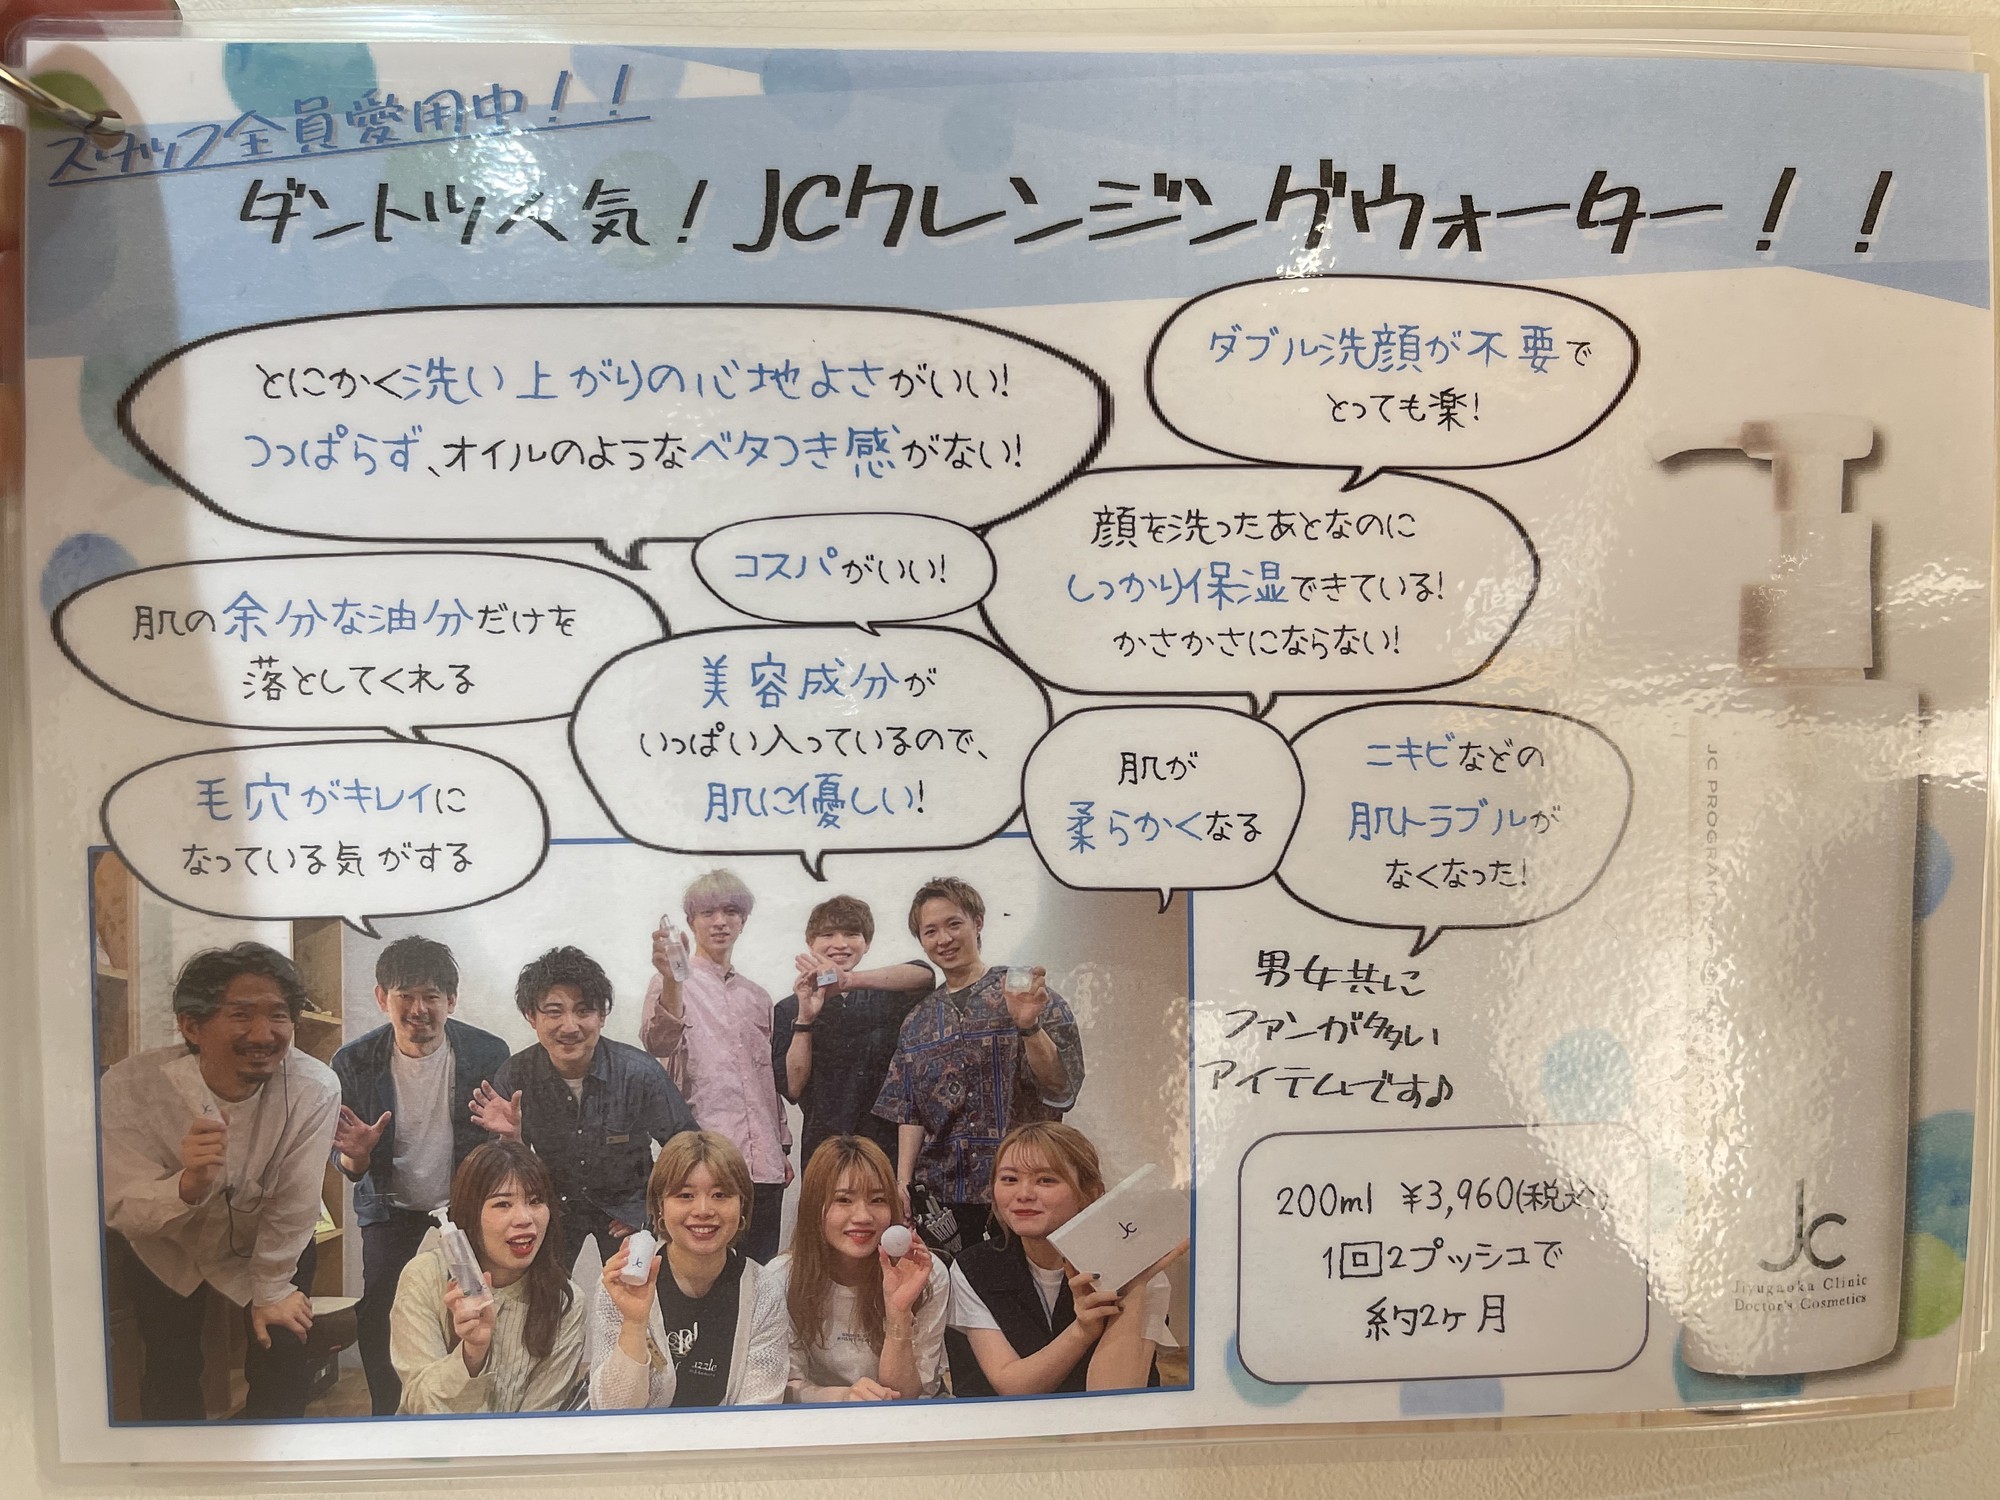 スタッフ全員愛用中！！
ダントツ人気！JCクレンジングウォーター！！
とにかく洗い上がりの心地よさがいい！
つっぱらず、オイルのようなベタつき感がない！
ダブル洗顔が不要で
とっても楽！
コスパがいい！
顔を洗ったあとなのに
しっかり保湿できている！
かさかさにならない！
肌の余分な油分だけを
落としてくれる
美容成分が
いっぱい入っているので、
肌に優しい！
毛穴がキレイに
なっている気がする
肌が
柔らかくなる
ニキビなどの
肌トラブルが
なくなった！
男女共に
ファンが多い
アイテムです♪
200ml ¥3,960(税込)
1回2プッシュで
約2ヶ月
JC PROGRAM
Jc
Jiyugaoka Clinic
Doctor's Cosmetics
Jc